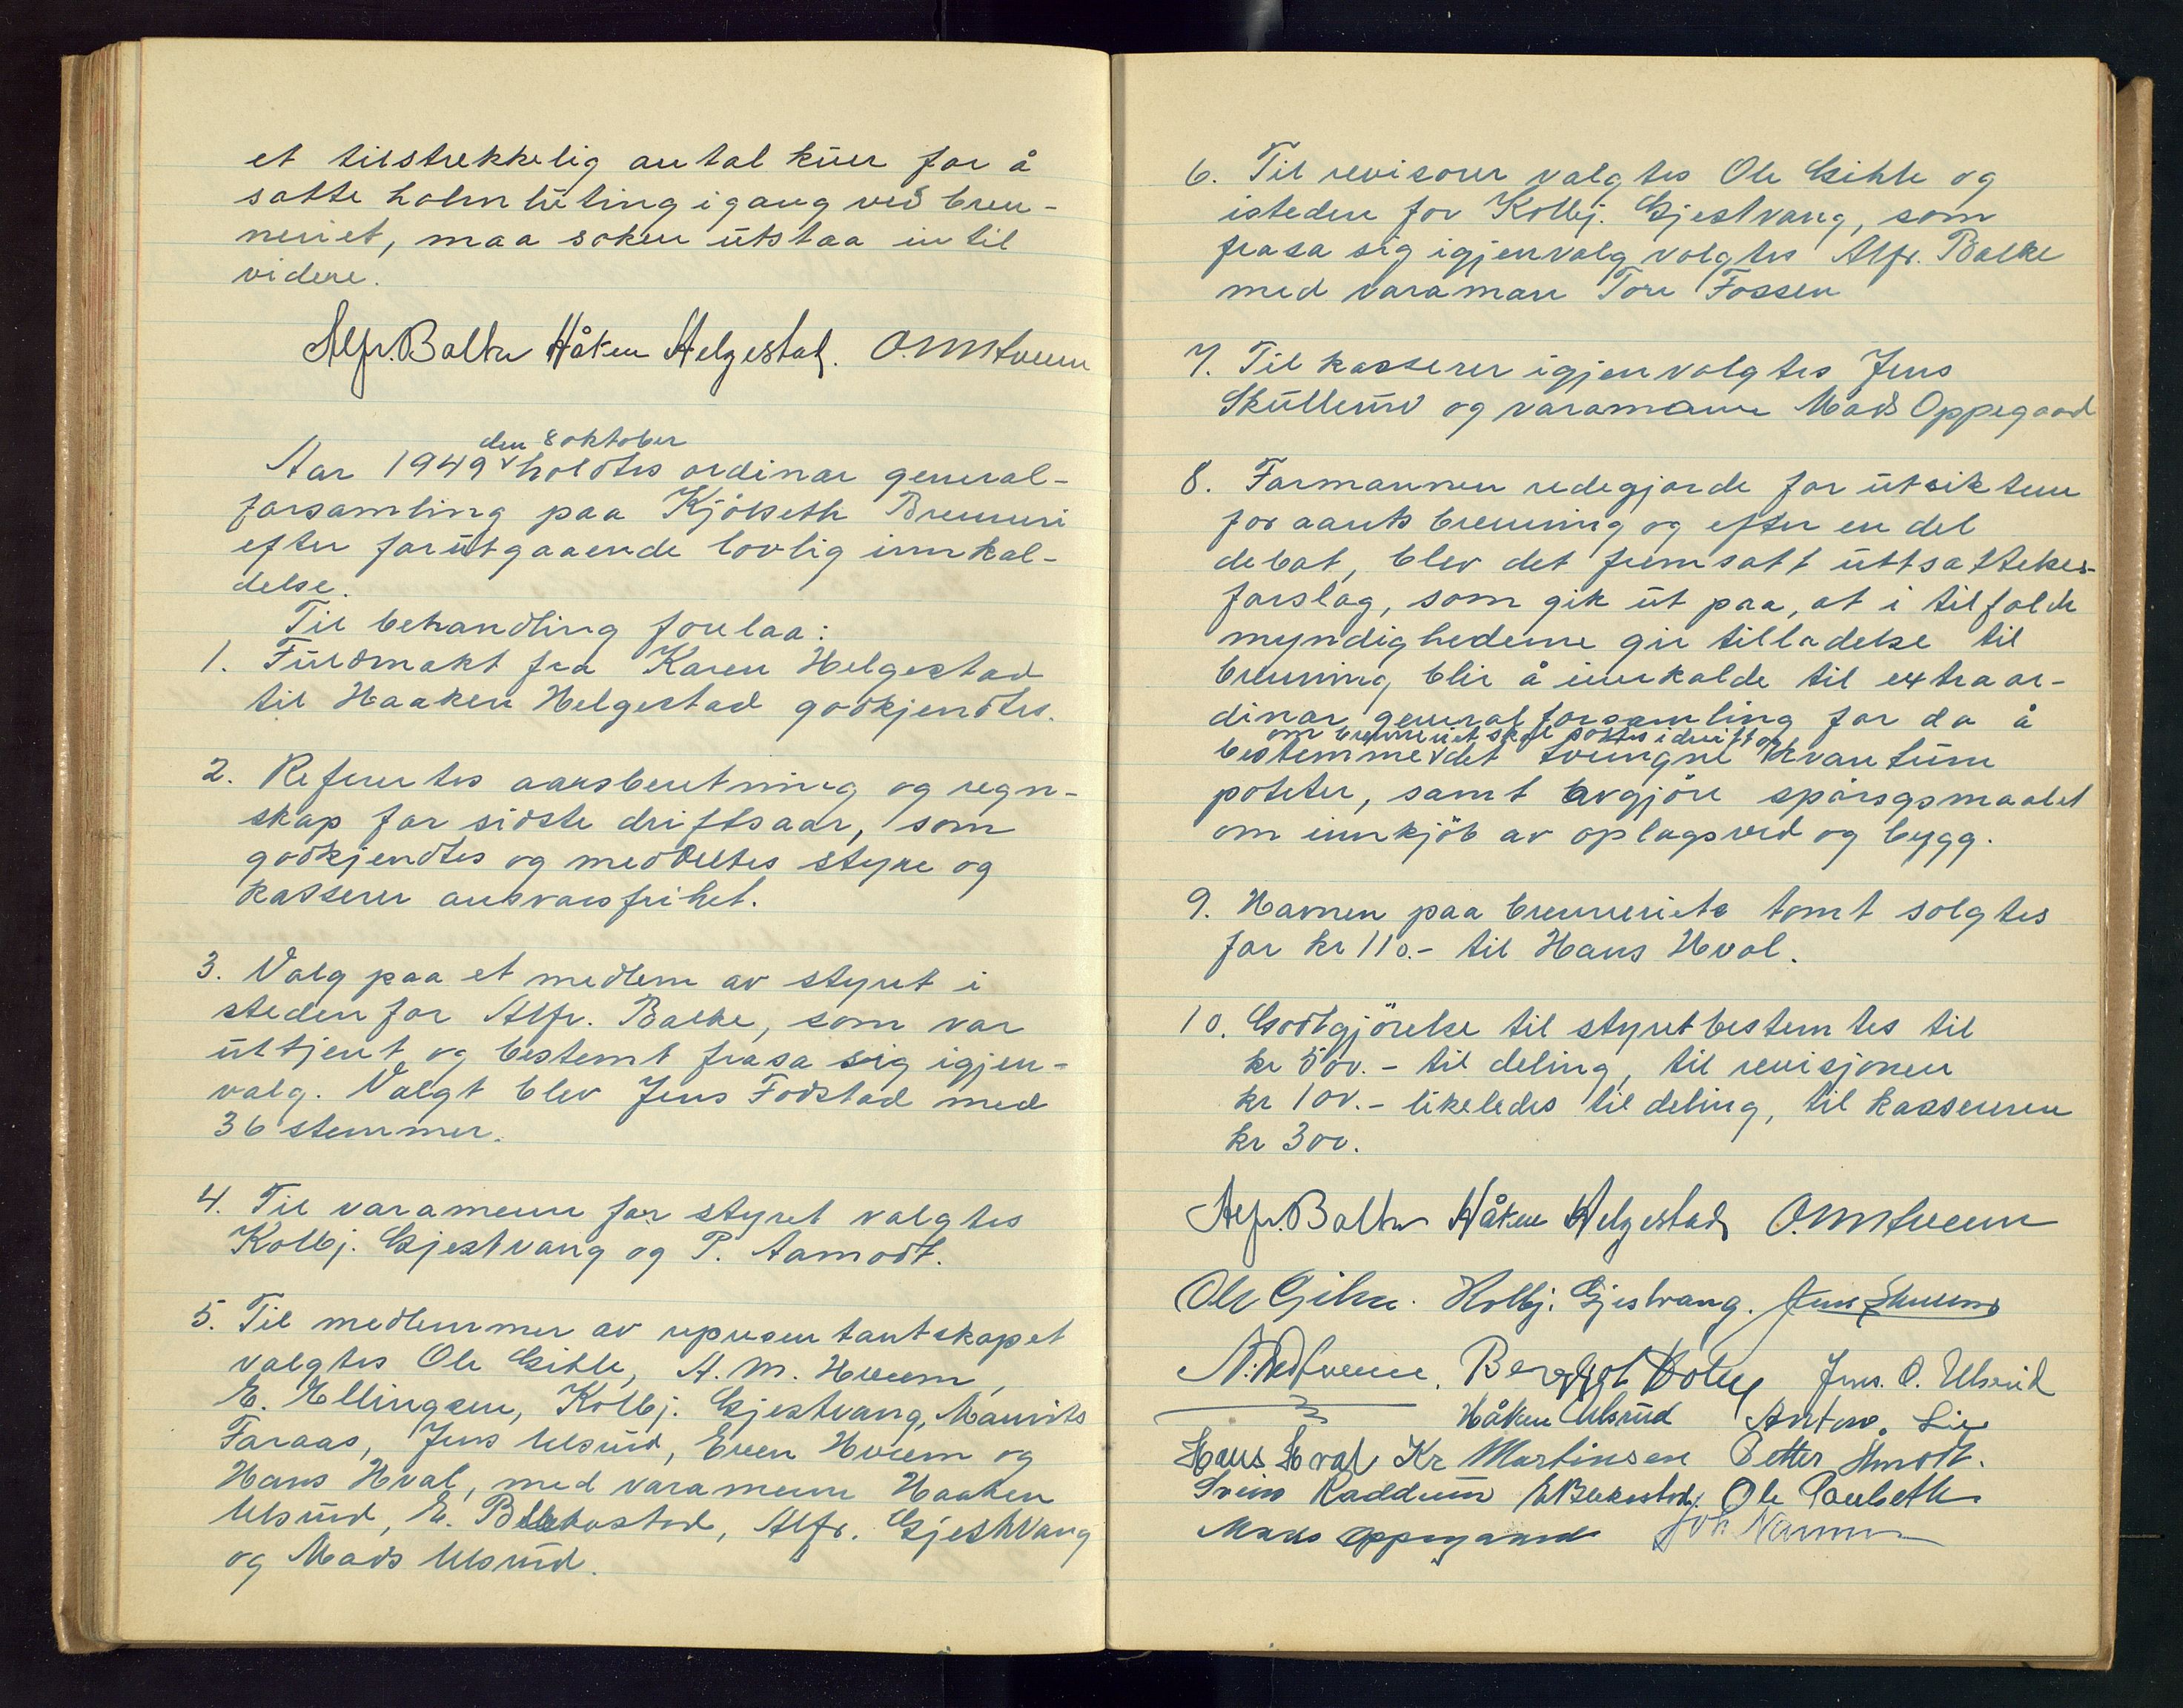 et tilstrekkelig antal kuer for å
sætte halmluting igang ved bren-
neriet, maa saken utstaa intil
videre.
Alfr. Balke Håken Helgestad. O. M. Hveem
den 8 oktober
Aar 1949 holdtes ordinær general-
forsamling paa Kjølseth Brenneri
efter forutgaaende lovlig innkal-
delse.
Til behandling forelaa:
1. Fuldmakt fra Karen Helgestad
til Haaken Helgestad godkjendtes.
2. Refertes aarsberetning og regn-
skap for sidste driftsaar, som
godkjendtes og meddeltes styre og
kasserer ansvarsfrihet.
3. Valg paa et medlem av styret i
steden for Alfr. Balke, som var
uttjent og bestemt frasa sig igjen-
valg. Valgt blev Jens Fodstad med
36 stemmer.
4. Til varamenn for styret valgtes
Kolbj. Gjestvang og P. Aamodt.
5. Til medlemmer av representantskapet
valgtes Ole Gihle, A. M. Hveem,
E. Ellingsen, Kolbj. Gjestvang, Maurits
Faraas, Jens Ulsrud, Even Hveem og
Hans Hval, med varamenn Haaken
Ulsrud, E. Berkostad, Alfr. Gjestvang
og Mads Ulsrud.
6. Til revisorer valgtes Ole Gihle og
isteden for Kolbj. Gjestvang, som
frasa sig igjenvalg valgtes Alfr. Balke
med varaman Tore Fossen
7. Til kasserer igjenvalgtes Jens
Skullerud og varamann Mads Oppegaard
8. Formannen redegjorde for utsiktene
for aarets brenning og efter en del
debat, blev det fremsatt uttsættelses-
forslag, som gik ut paa, at i tilfælde
myndighedene gir tilladelse til
brenning, blir å innkalde til extraor-
dinær generalforsamling for da å
om brenneriet skal sættes i drift og
bestemme det tvungne kvantum
poteter, samt avgjøre spørsgsmaalet
om innkjøb av oplagsved og bygg.
9. Havnen paa brenneriets tomt solgtes
for kr 110.- til Hans Hval.
10. Godtgjørelse til styret bestemtes til
kr 500.- til deling, til revisjonen
kr 100.- likeledes til deling, til kassereren
kr 300.
Alfr. Balke Håken Helgestad O. M. Hveem
Ole Gihle. Kolbj. Gjestvang. Jens Skullerud
Hveem. Bergljot Jens. O. Ulsrud
Håken Ulsrud Anton. Lie
Hans Hval Kr Martinsen Petter Åmodt.
Svein Raddum E Berkostad. Ole
Mads Oppegaard Joh